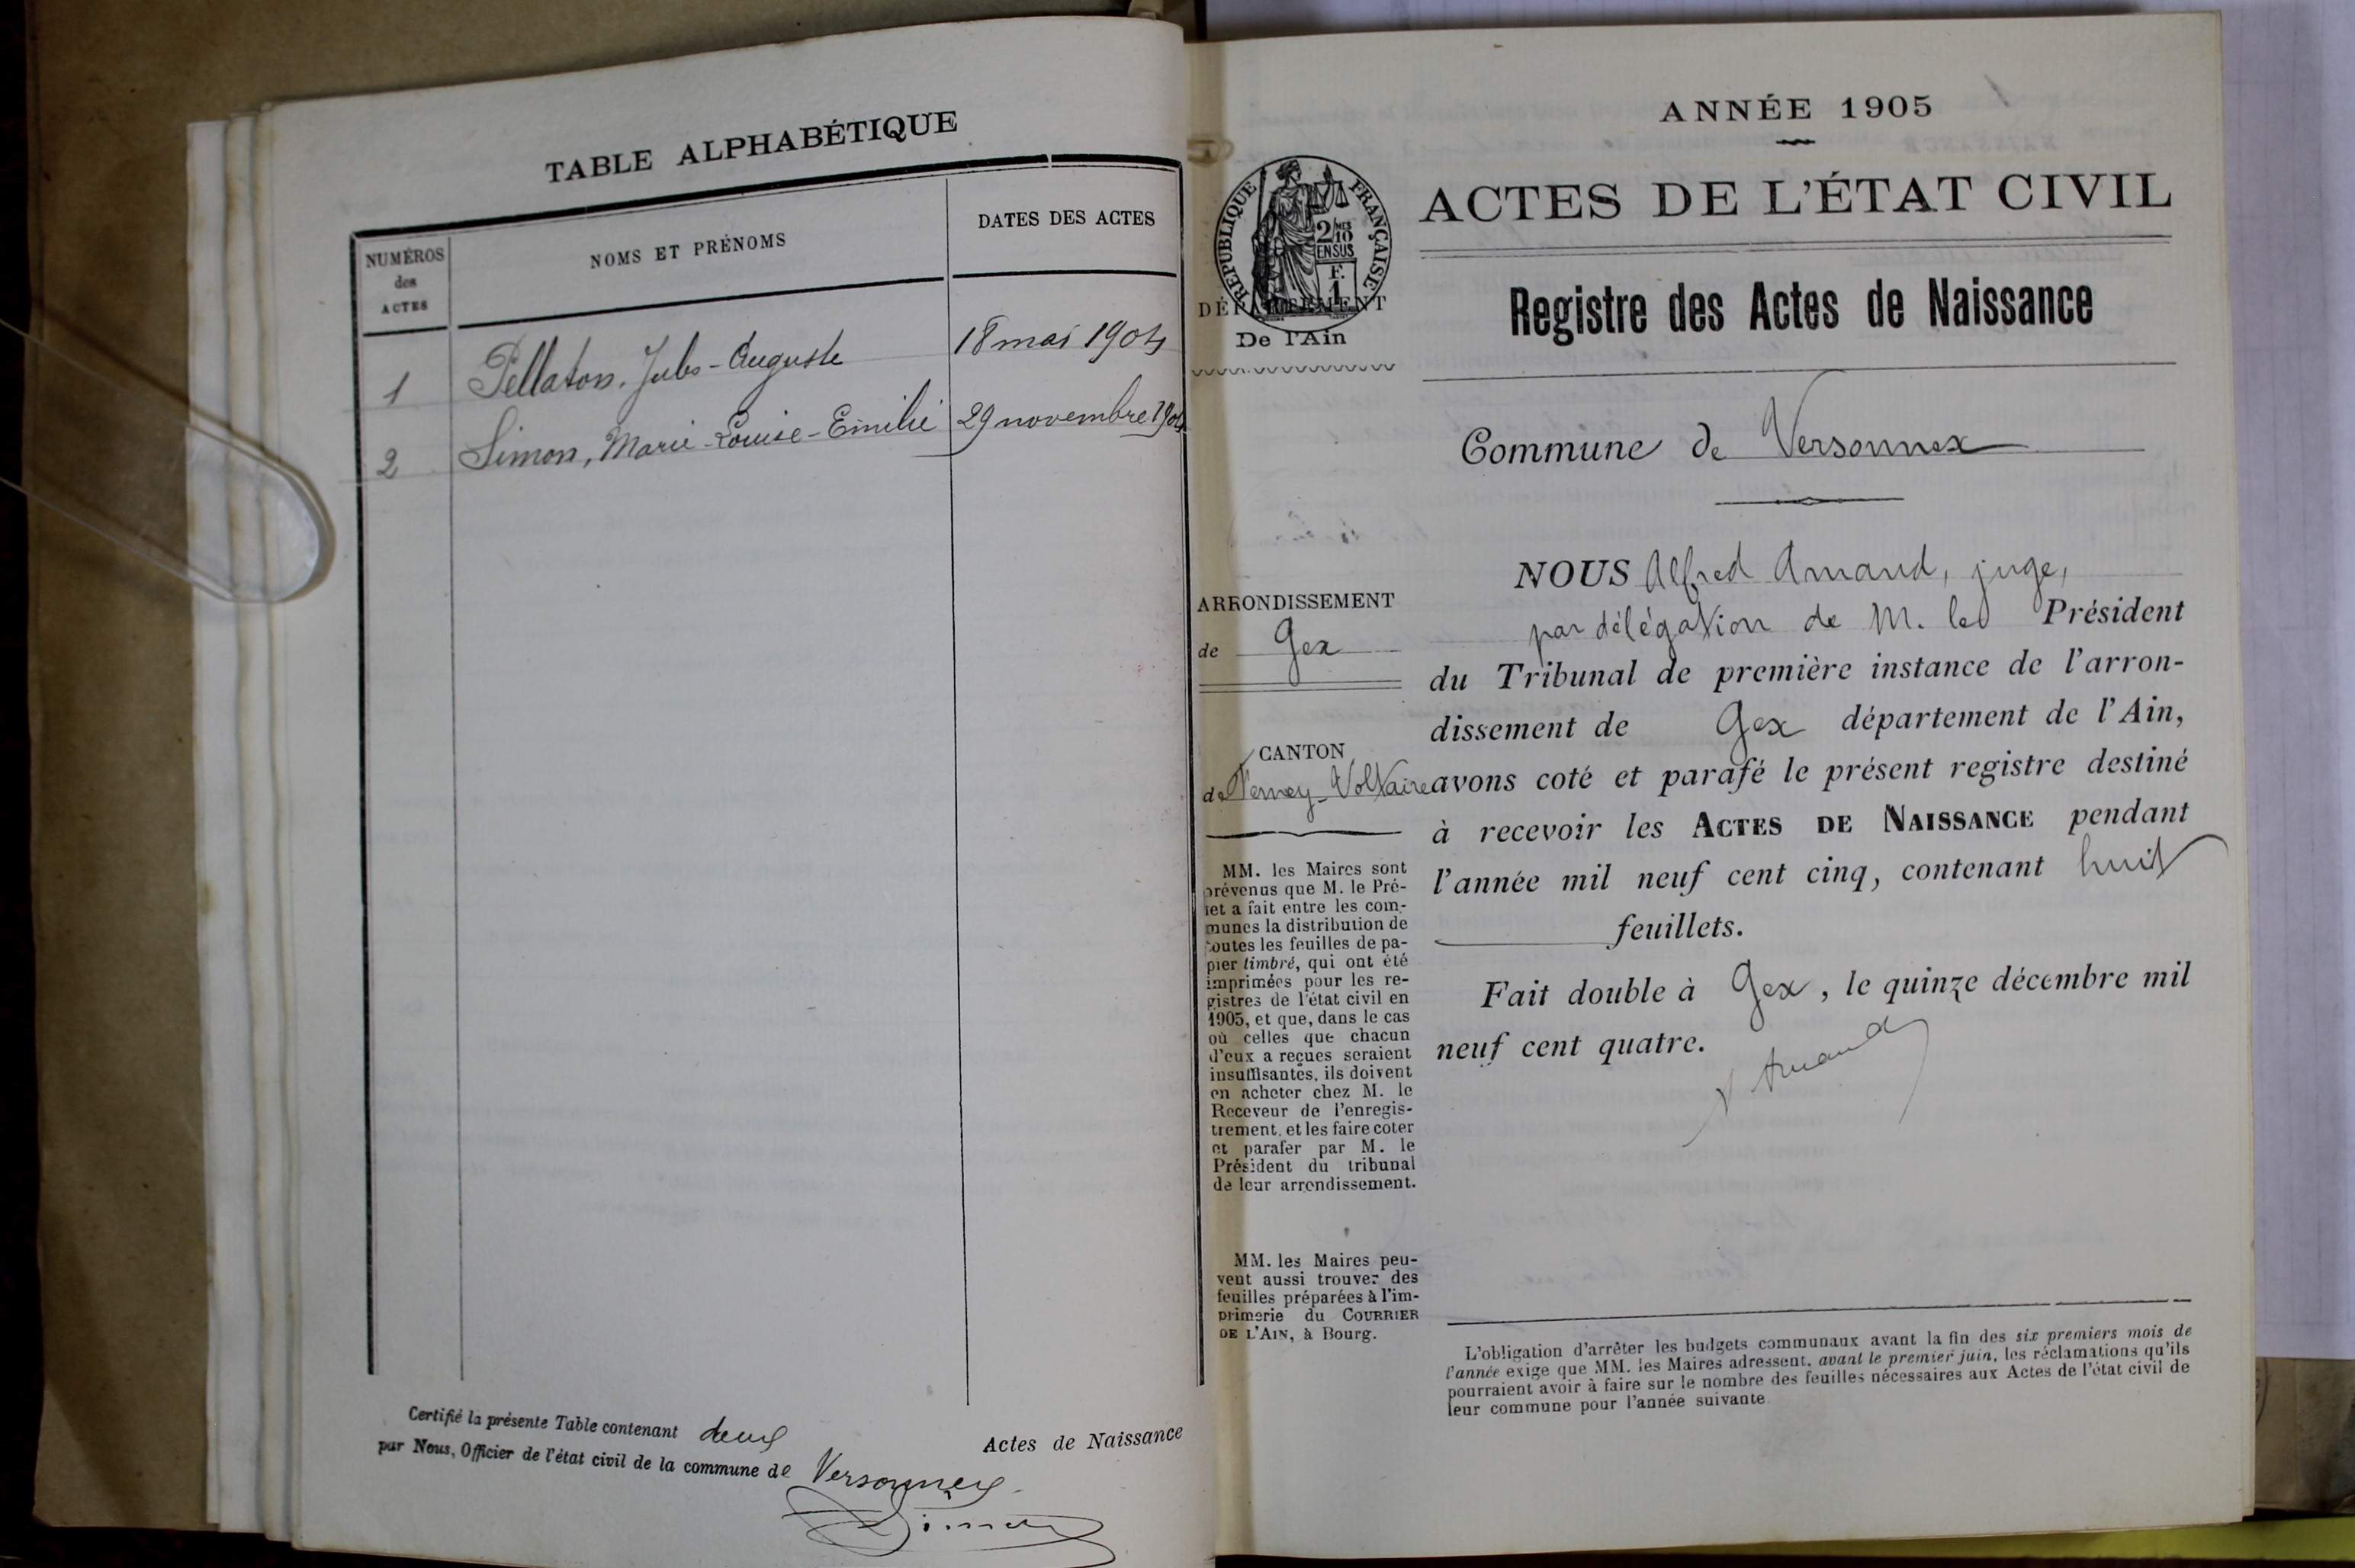 TABLE ALPHABÉTIQUE
NUMÉROS
des
ACTES
NOMS ET PRÉNOMS
DATES DES ACTES
1 Pellaton, Jules-Auguste 18 mai 1904
2 Simon, Marie-Louise-Emilie 29 novembre 1904
Certifié la présente Table contenant deux Actes de Naissance
par Nous, Officier de l'état civil de la commune de Versonnex
Simon
RÉPUBLIQUE FRANÇAISE
2 MES
10
EN SUS
F.
1
DÉPARTEMENT
De l'Ain
ARRONDISSEMENT
de Gex
CANTON
de Ferney-Voltaire
MM. les Maires sont
prévenus que M. le Pré-
fet a fait entre les com-
munes la distribution de
toutes les feuilles de pa-
pier timbré, qui ont été
imprimées pour les re-
gistres de l'état civil en
1905, et que, dans le cas
où celles que chacun
d'eux a reçues seraient
insuffisantes, ils doivent
en acheter chez M. le
Receveur de l'enregis-
trement, et les faire coter
et parafer par M. le
Président du tribunal
de leur arrondissement.
MM. les Maires peu-
vent aussi trouver des
feuilles préparées à l'im-
primerie du COURRIER
DE L'AIN, à Bourg.
ANNÉE 1905
ACTES DE L'ÉTAT CIVIL
Registre des Actes de Naissance
Commune de Versonnex
NOUS Alfred Amaud, juge,
par délégation de M. le Président
du Tribunal de première instance de l'arron-
dissement de Gex département de l'Ain,
avons coté et parafé le présent registre destiné
à recevoir les ACTES DE NAISSANCE pendant
l'année mil neuf cent cinq, contenant huit
feuillets.
Fait double à Gex, le quinze décembre mil
neuf cent quatre.
Amaud
L'obligation d'arrêter les budgets communaux avant la fin des six premiers mois de
l'année exige que MM. les Maires adressent, avant le premier juin, les réclamations qu'ils
pourraient avoir à faire sur le nombre des feuilles nécessaires aux Actes de l'état civil de
leur commune pour l'année suivante.